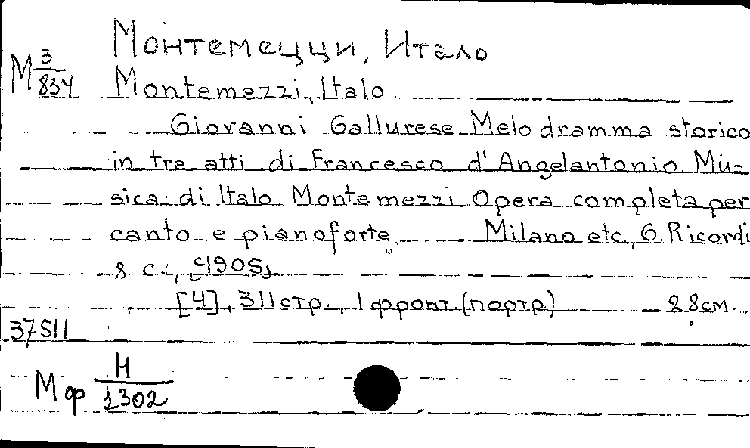 Монтемецци, Итало
М 3/834 Montemezzi, Italo
Giovanni Gallurese Melodramma storico
in tre atti di Francesco d'Angelantonio Mu-
sica di Italo Montemezzi Opera completa per
canto e pianoforte Milano etc, G Ricordi
8 c., [1905]
[4], 311 стр., 1 фронт (портр) 28см.
37511
Мф Н/1302